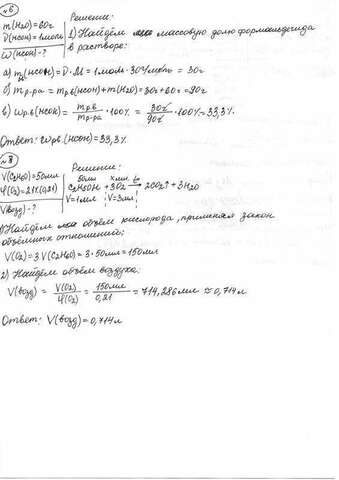 №6
Решение:
m(H2O)=60г
ν(HCOH)=1моль
W(HCOH)-?
1) Найдём массовую долю формальдегида
в растворе:
а) m(HCOH)=ν·M=1моль·30г/моль = 30г
б) mр.ра = mр.в(HCOH)+m(H2O)=30г+60г=90г
в) Wр.в(HCOH) = mр.в/mр-ра ·100% = 30г/90г ·100%=33,3%
Ответ: Wрв.(HCOH)=33,3%
№8
Решение:
V(C2H6O)=50мл
φ(O2)=21%(0,21)
V(возд)-?
50мл хмл. to
C2H5OH + 3O2 → 2CO2↑+3H2O
V=1мл V=3мл
1) Найдём объём кислорода, применяя закон
объёмных отношений:
V(O2)=3V(C2H6O)=3·50мл=150мл
2) Найдём объём воздуха:
V(возд) = V(O2)/φ(O2) = 150мл/0,21 = 714,286мл ≈ 0,714л
Ответ: V(возд)=0,714л